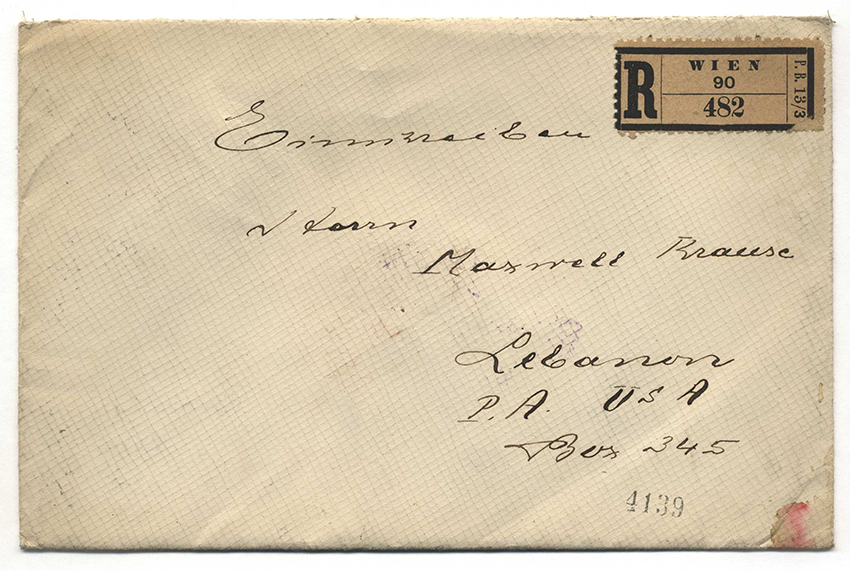 R
WIEN
90
482
P. B. 13/3
Einschreiben
Herrn
Maxwell Krause
Lebanon
P.A. USA
Box 345
4139